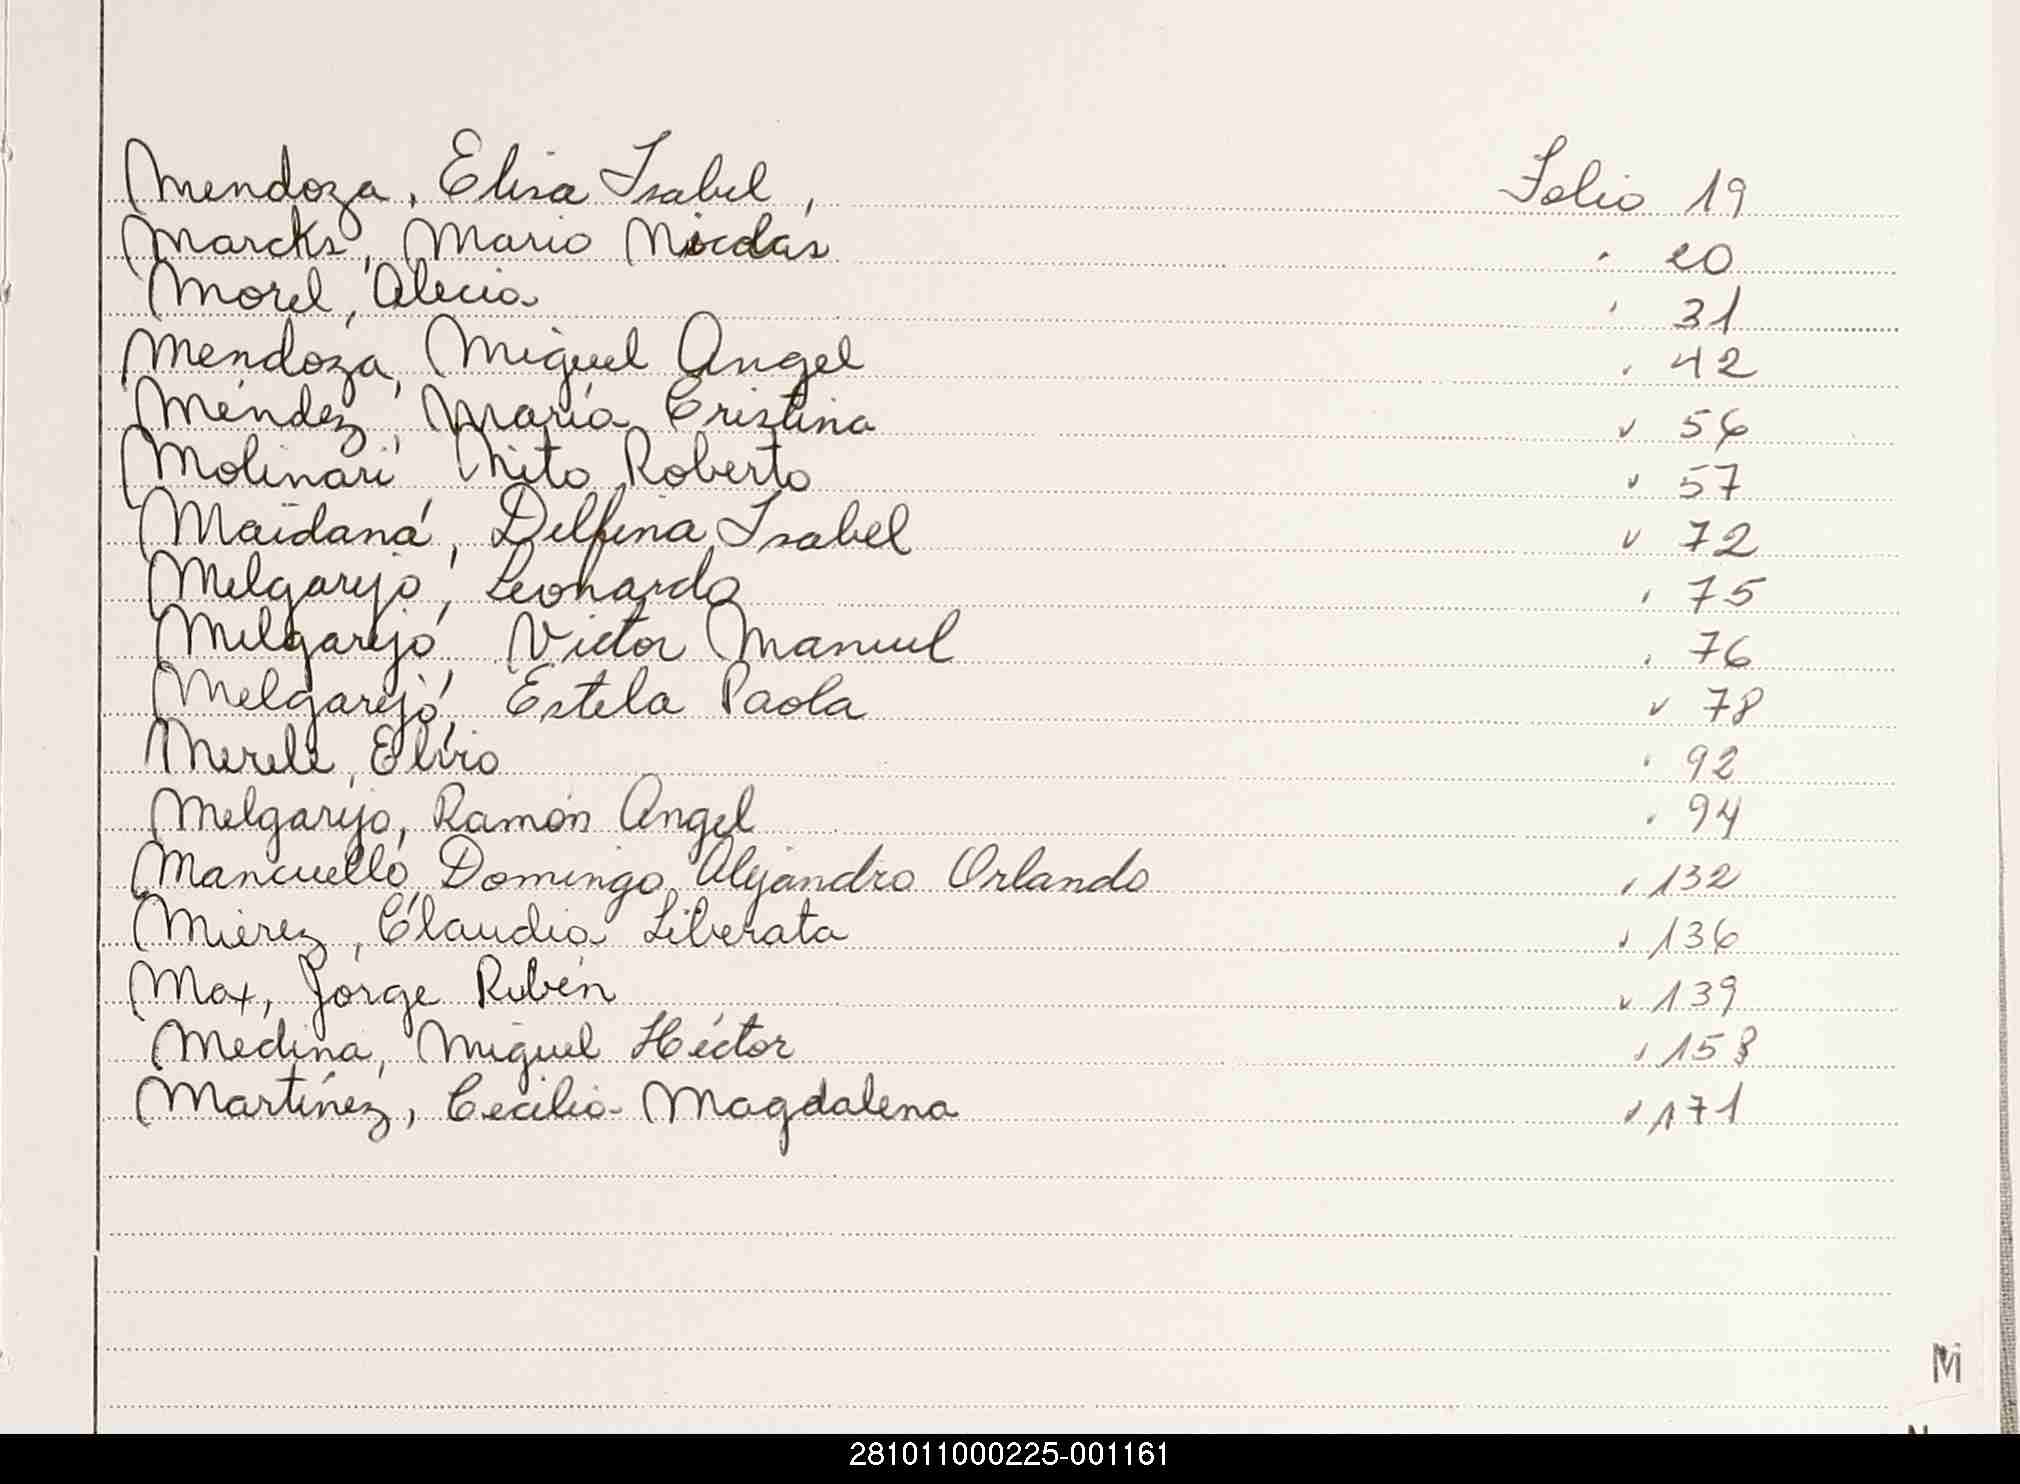 Mendoza, Elisa Isabel, Folio 19
Marcks, Mario Nicolás " 20
Morel, Alecia " 31
Mendoza, Miguel Angel " 42
Méndez, María Cristina " 56
Molinari, Roberto " 57
Maidana, Delfina Isabel " 72
Melgarejo, Leonardo " 75
Melgarejo, Victor Manuel " 76
Melgarejo, Estela Paola " 78
Merele, Elvio " 92
Melgarejo, Ramón Angel " 94
Mancuello, Domingo Alejandro Orlando " 132
Mierez, Claudia Liberata " 136
Max, Jorge Rubén " 139
Medina, Miguel Héctor " 158
Martínez, Cecilia Magdalena " 171
M
281011000225-001161